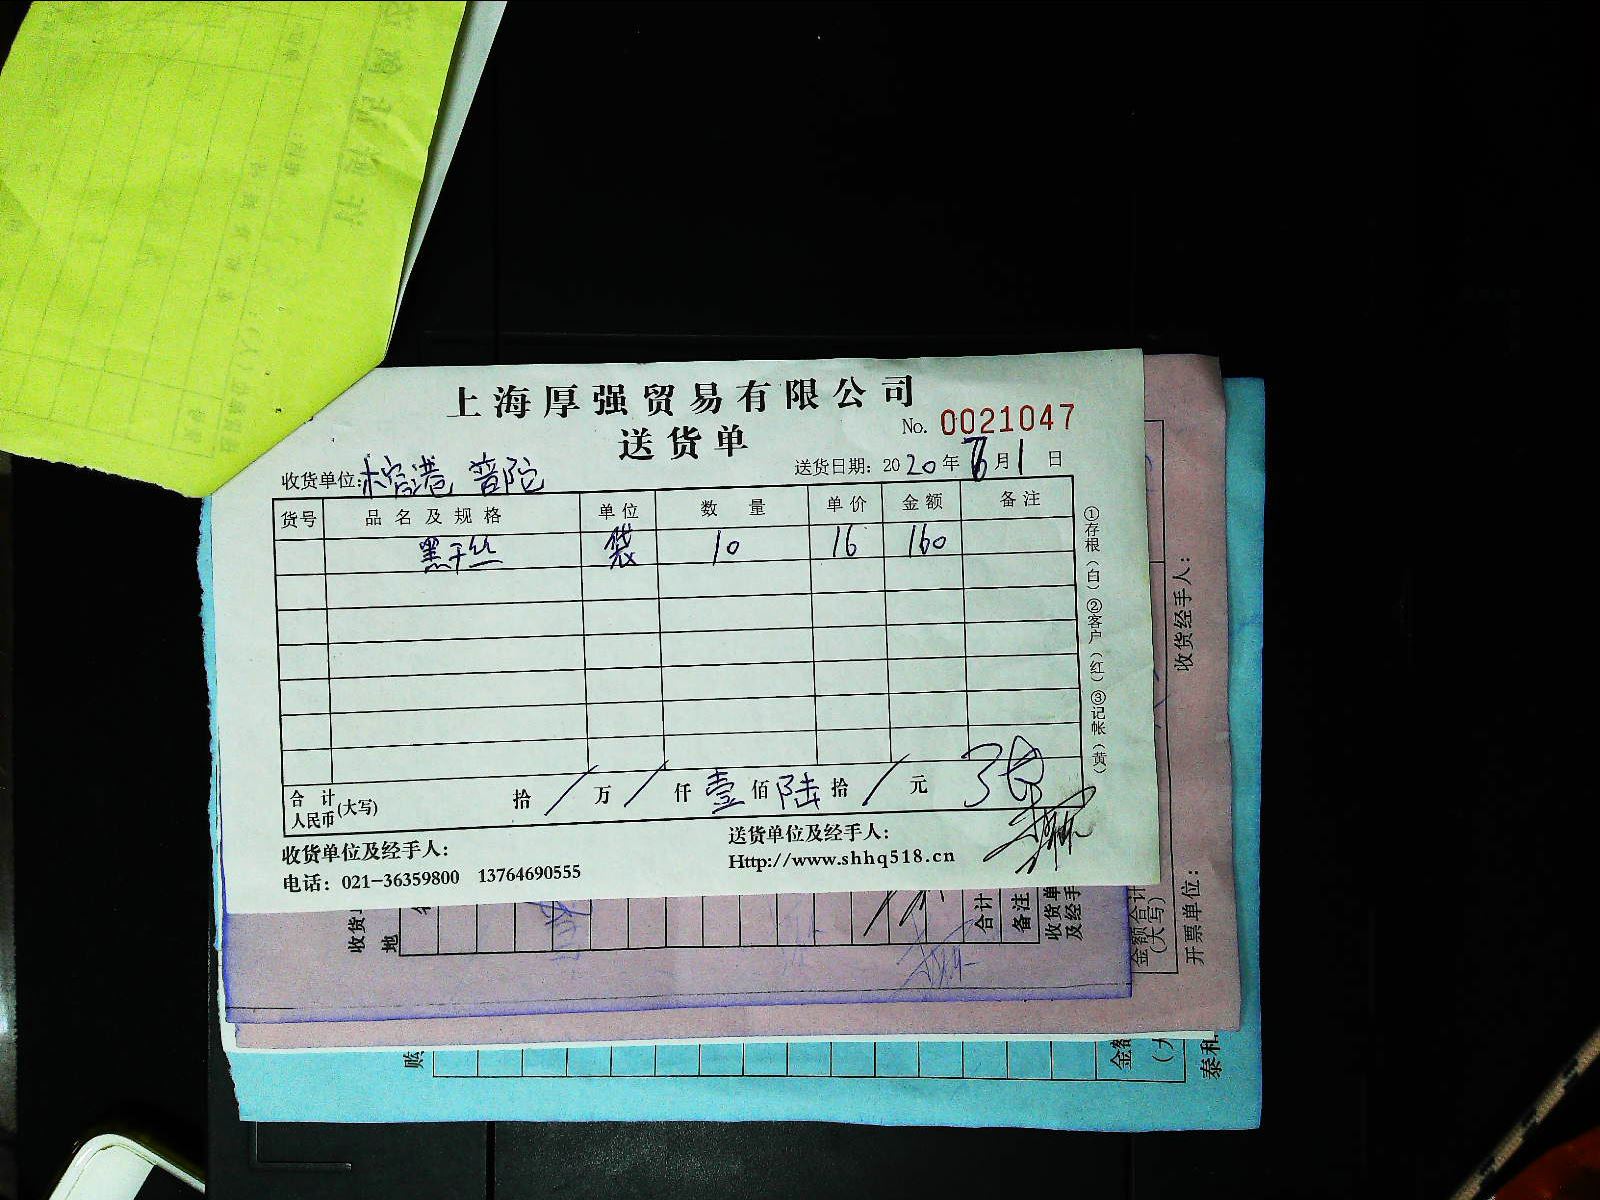 上海厚强贸易有限公司
送货单
No. 0021047
收货单位: 普陀
送货日期: 2020年6月1日
货号 品名及规格 单位 数量 单价 金额 备注
黑干丝 袋 10 16 160
合计人民币(大写) 拾 / 万 / 仟 壹 佰 陆 拾 / 元
收货单位及经手人:
送货单位及经手人:
电话: 021-36359800 13764690555
Http://www.shhq518.cn
①存根(白)②客户(红)③记帐(黄)
收货经手人:
开票单位:
金额合计
(大写)
合计
备注
收货单
及经手
收货
地
金额
泰和